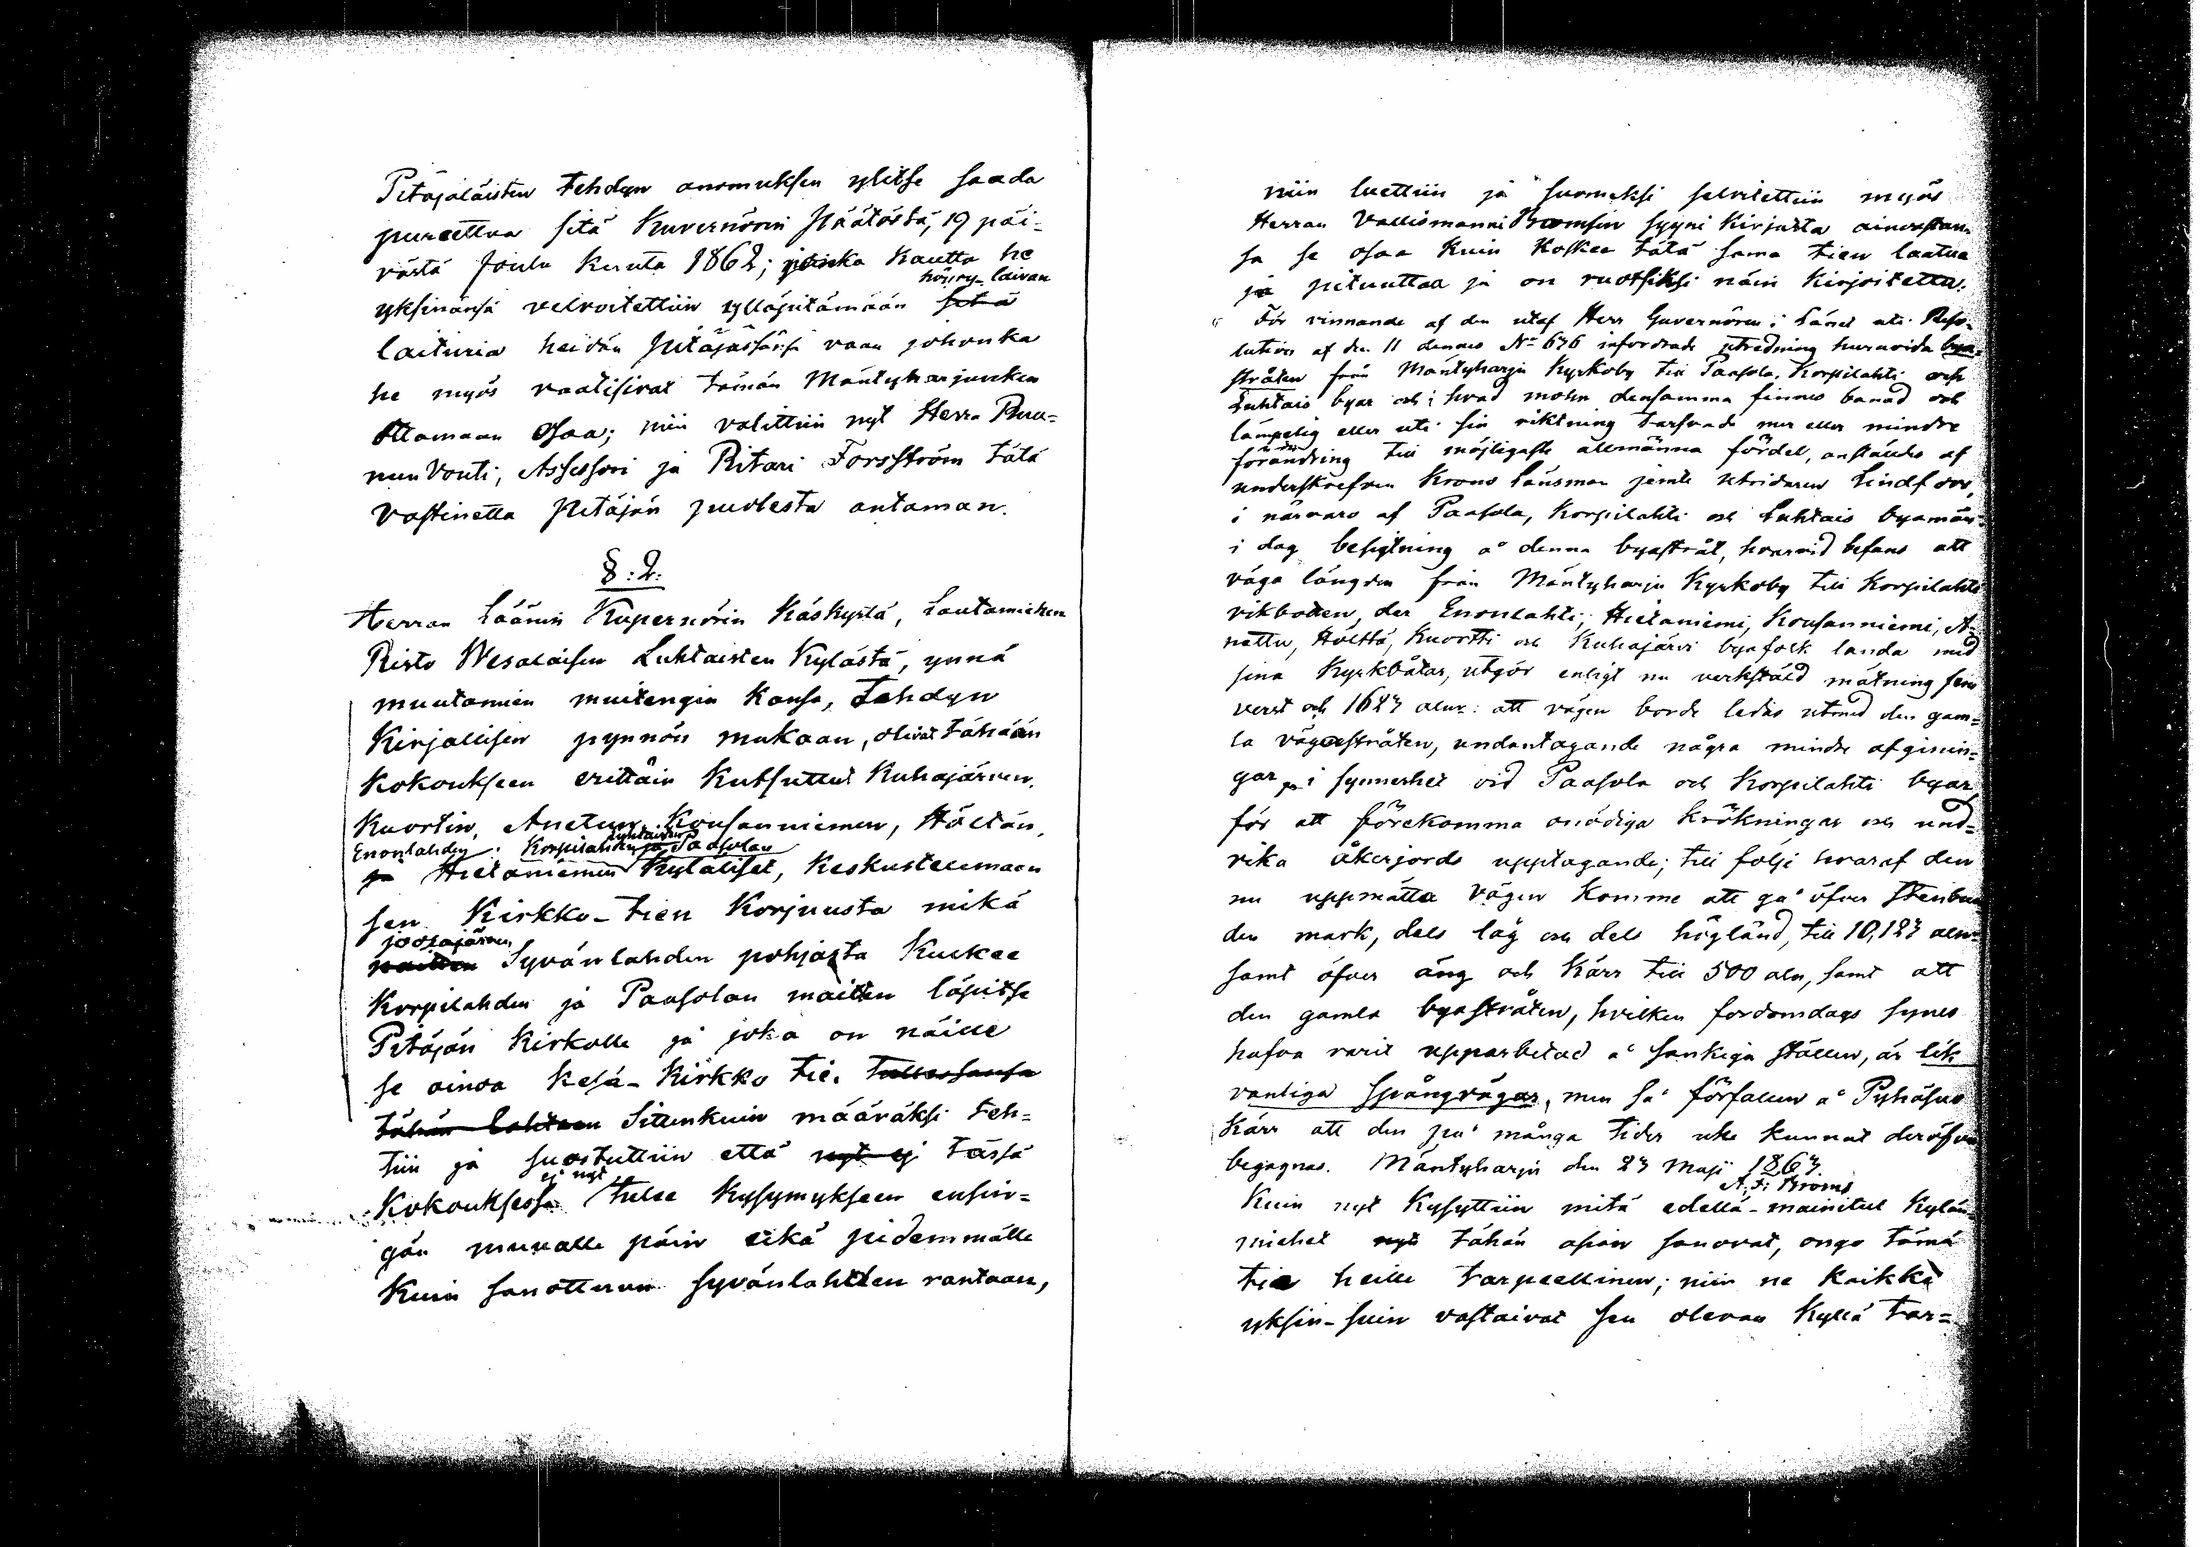 Pitäjäläisten tehdyn anomuksen ylitse saada
purettua sitä Kuvernörin Päätöstä, 19 päi-
västä Joulu kuuta 1862; jonka kautta he
höyry-laivan
yksinänsä velvoitettiin ylläpitämään sitä
laituria heidän pitäjässänsä vaan johonka
he myös vaatisivat tämän Mäntyharjunkin
Ottamaan Osaa; niin valittiin nyt Herra Ruu-
nun Vouti, Assessori ja Ritari Forsström tätä
vastinetta Pitäjän puolesta antaman.
§. 2.
Herran Läänin Kupernörin Käskystä, Lautamiehen
Risto Wesaläisen Luhtaisten Kylästä, ynnä
muutamien muitengin kansa, tehdyn
Kirjallisen pynnön mukaan, olivat tähään
kokoukseen erittäin Kutsuttut Kuhajärven,
Kuortin, Anetun, Kousanniemen, Höltän,
Luhtaisten
Enonlahden, Korpilahden ja Paasolan
ja Hietaniemen Kyläliset, keskustelemaan
sen Kirkko-tien Korjuusta mikä
joutsajärven
Syvänlahden pohjasta Kulkee
Korpilahden ja Paasolan maitten läpitse
Pitäjän Kirkolle ja joka on näille
se ainoa kesä-kirkko tie.
tähän Sitenkuin määräksi teh-
tiin ja suostuttiin että nyt ej tässä
ej nyt
Kokouksessa tulee kysymykseen ensin-
gän muualle päin eikä pidemmälle
kuin sanottuun syvänlahten rantaan,
niin luettiin ja suomeksi selvitettiin myös
Herran Vallismanni Bromsin syyni kirjasta ainoastan-
sa se osaa kuin koskee tätä sama tien laatua
ja pituuttaa ja on ruotsiksi näin kirjoitettu.
"För vinnande af den utaf Herr Guvernören i Länet uti Reso-
lution af den 11 dennes No 676 infordrade utredning huruvida bya-
stråten från Mäntyharju Kyrkoby till Paasola, Korpilahti och
Luhtais byar och i hvad mohn densamma finnes banad och
lämpelig eller uti sin riktning tarfvade mer eller mindre
förändring till möjligaste allmänna fördel, anställdes af
underskrefven Krono Länsman jemte utridaren Lindfors,
i närvaro af Paasola, Korpilahti och Luhtais byamän
i dag besigtning å denna byastråt, hvarvid befans att
väga längden från Mäntyharju Kyrkoby till Korpilahti
vikbotten, der Enonlahti, Hietaniemi, Kousanniemi, A-
nettu, Höltta, Kuortti och Kuhajärvi byafolk landa med
sina Kyrkbåtar, utgör enligt nu verkstäld mätning fem
verst och 1627 alnr: att vägen borde ledas utmed den gam-
la vägastråten, undantagande några mindre afginin-
gar i synnerhet vid Paasola och Korpilahti byar
för att förekomma onödiga krökningar och und-
vika åkerjords upptagande; till följe hvaraf den
nu uppmätta vägen komme att gå öfver stenbun
den mark, dels låg och dels högländ, till 10,127 alnr
samt öfver äng och kärr till 500 aln, samt att
den gamla byastråten, hvilken fordomdags synes
hafva varit upparbetad å sankiga ställen, är lik
vanliga spångvägar, men så förfallen å Pyhäsuo
Kärr att den på många tider icke kunnat deröfver
begagnas. Mäntyharju den 27 Maji 1867.
A. F. Broms
Kuin nyt kysyttiin mitä edellä-mainitut Kylän
miehet nyt tähän asian sanovat, ongo tämä
tie heille tarpeellinen; niin ne kaikki
yksin-suin vastaivat sen olevan kyllä tar-